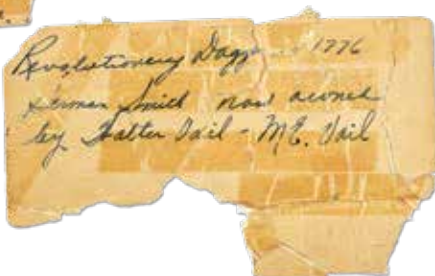 Revolutionary Dagger 1776
Herman Smith now owned
by Walter Vail - M.E. Vail